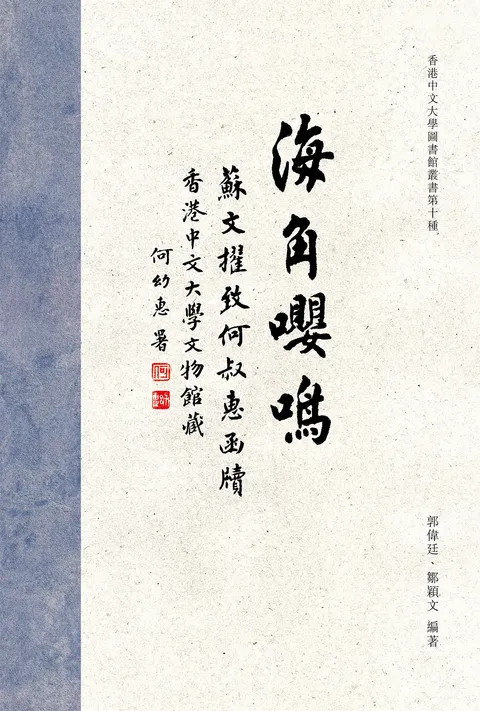 香港中文大學圖書館叢書第十種
海角嚶鳴
蘇文擢致何叔惠函牘
香港中文大學文物館藏
何幼惠署
郭偉廷、鄒穎文 編著